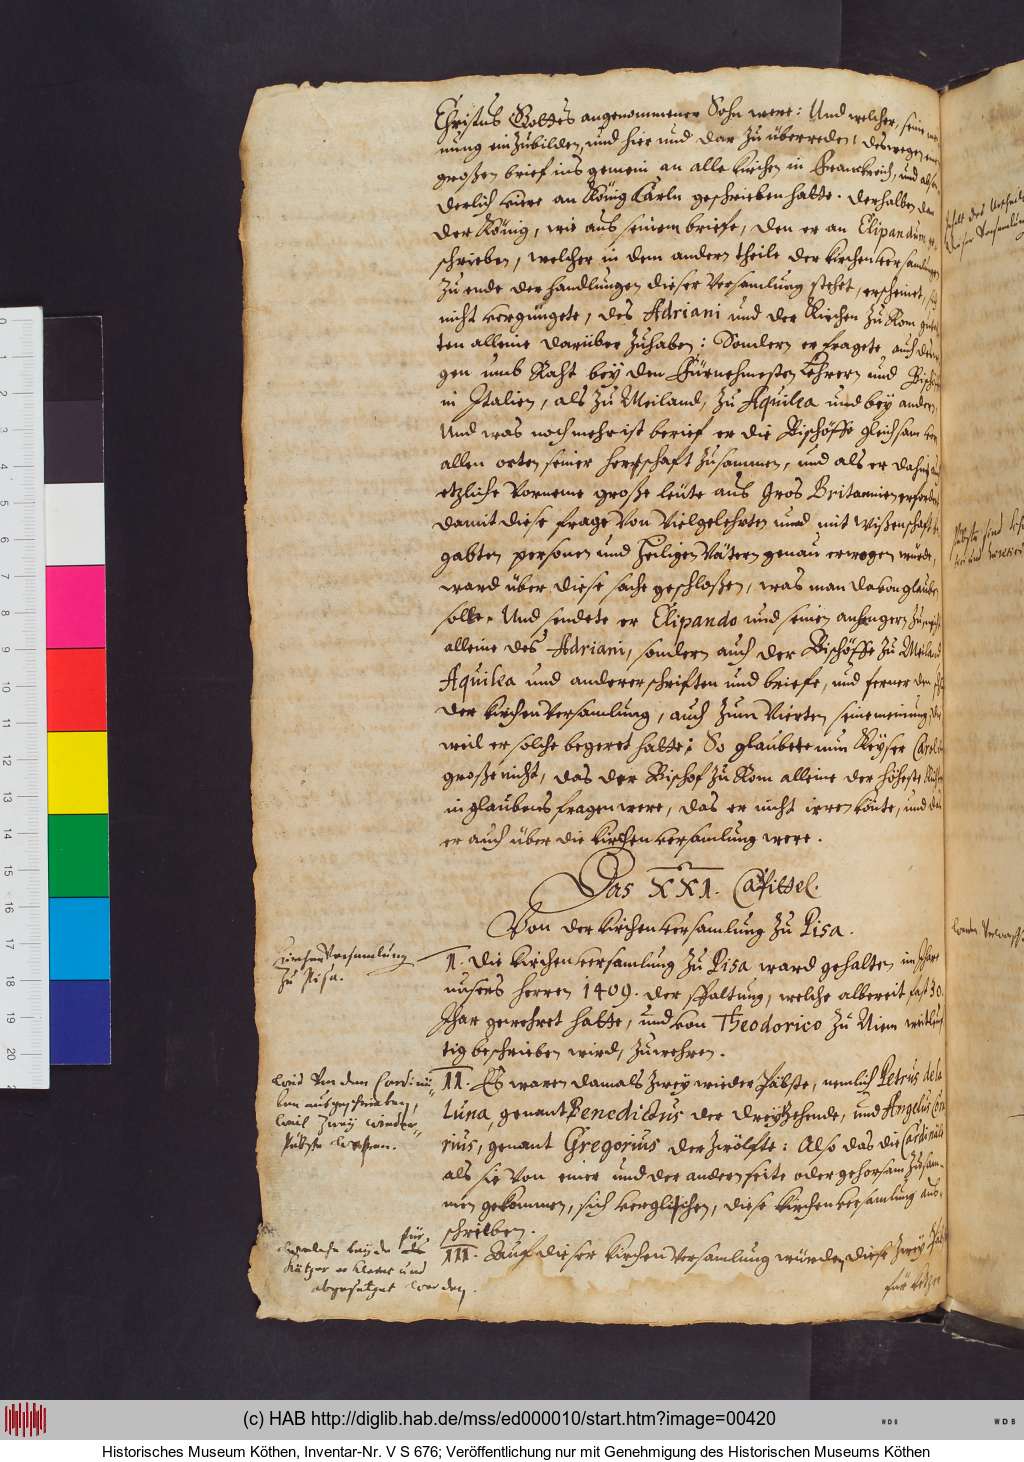 Christus Gottes angenommener Sohn were: Und welcher, seine mei-
nung einzubilden, und hier und dar zu überreden, deswegen einen
großen brief ins gemein an alle kirchen in Franckreich, und abson-
derlich viere an König Karln geschrieben hatte. derhalben den
der König, wie aus seinem briefe, den er an Elipandum ge-
schrieben, welcher in dem andern theile der kirchenversamlungen
zu ende der handlungen dieser Versamlung stehet, erscheinet, sich
nicht vergnügete, des Adriani und der Kirchen zu Rom
ten alleine darüber zuhaben: Sondern er fragete auch
gen umb Raht bey den Fürnehmesten Lehrern und Bischöffen
in Italien, als zu Meiland, zu Aquilea und bey andern,
Und was noch mehr ist berief er die Bischöffe gleichsam von
allen orten seiner herrschaft zusammen, und als er dahin auch
etzliche Vorneme große leüte aus Gros Britannien erfordert
damit diese frage von vielgelehrten und mit wißenschaft be-
gabten personen und heiligen Vätern genau erwogen würde,
ward über diese sache geschloßen, was man davon glauben
solle. Und sendete er Elipando und seinen anhengern zu, nicht
alleine des Adriani, sondern auch der Bischöffe zu Meiland
Aquilea und anderer schriften und briefe, und ferner den schlus
der kirchen Versamlung, auch zum Vierten seine meinung, die
weil er solche begeret hatte; So glaubete nun Keyser Carol der
große nicht, das der Bischof zu Rom alleine der höheste Richter
in glaubens fragen were, das er nicht irren könte, und das
er auch über die kirchenversamlung were.
Das XXI. Capittel.
Von der kirchenversamlung zu Pisa.
Kirchen Versamlung
zu Pisa.
I. Die kirchenversamlung zu Pisa ward gehalten im Jhare
unsers herren 1409. der spaltung, welche albereit fast 30.
Jhar gewehret hatte, und von Theodorico zu Niem weitleuf-
tig beschrieben wird, zuwehren.
wird von den Cardinä-
len ausgeschrieben,
weil zwey wieder-
Päbste wahren.
II. Es waren damals zwey wieder Päbste, nemlich Petrus de la
Luna, genant Benedictus der dreyzehende, und Angelus Cora-
rius, genant Gregorius der zwölfte: Also das die Cardinäle
als sie von einer und der andern seite oder gehorsam zusam-
men gekommen, sich verglichen, diese kirchenversamlung aus-
schrieben.
welche beyde für
Kätzer erkläret und
abgesetzet werden.
III. Auf dieser kirchen Versamlung würden, diese zwey Päbste
für ketzer
(c) HAB http://diglib.hab.de/mss/ed000010/start.htm?image=00420
Historisches Museum Köthen, Inventar-Nr. V S 676; Veröffentlichung nur mit Genehmigung des Historischen Museums Köthen